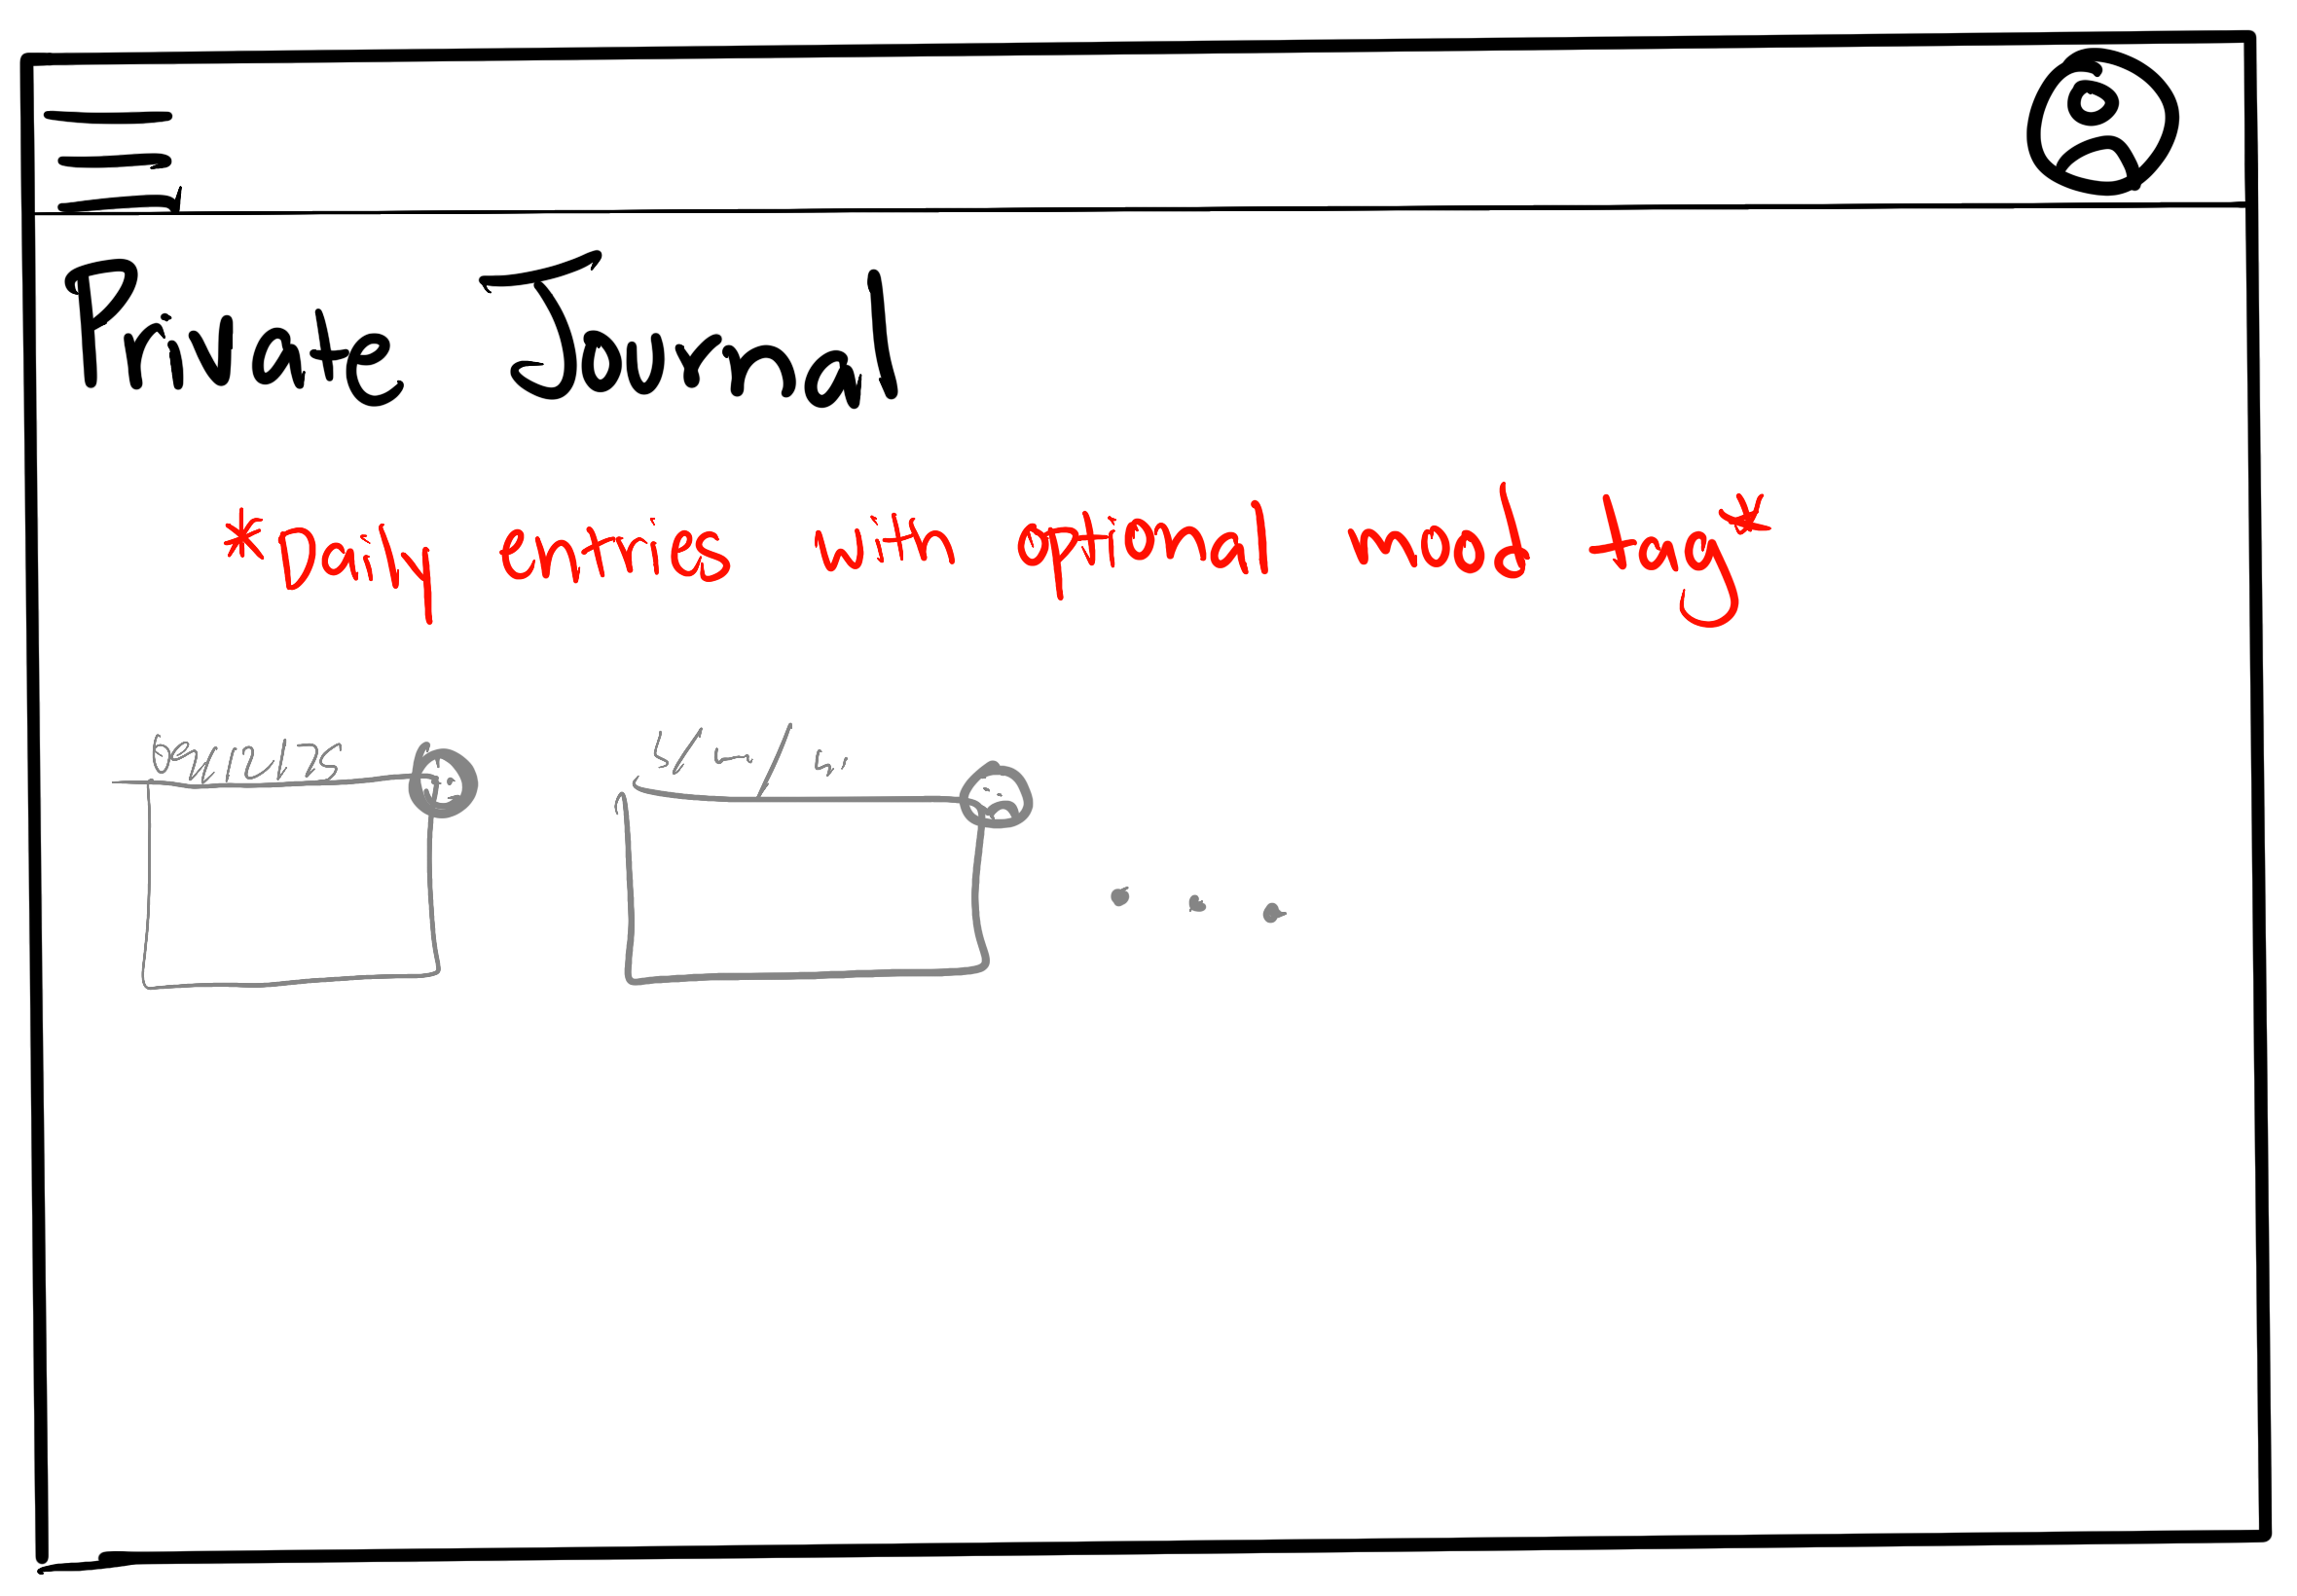 Private Journal
*Daily entries with optional mood tag*